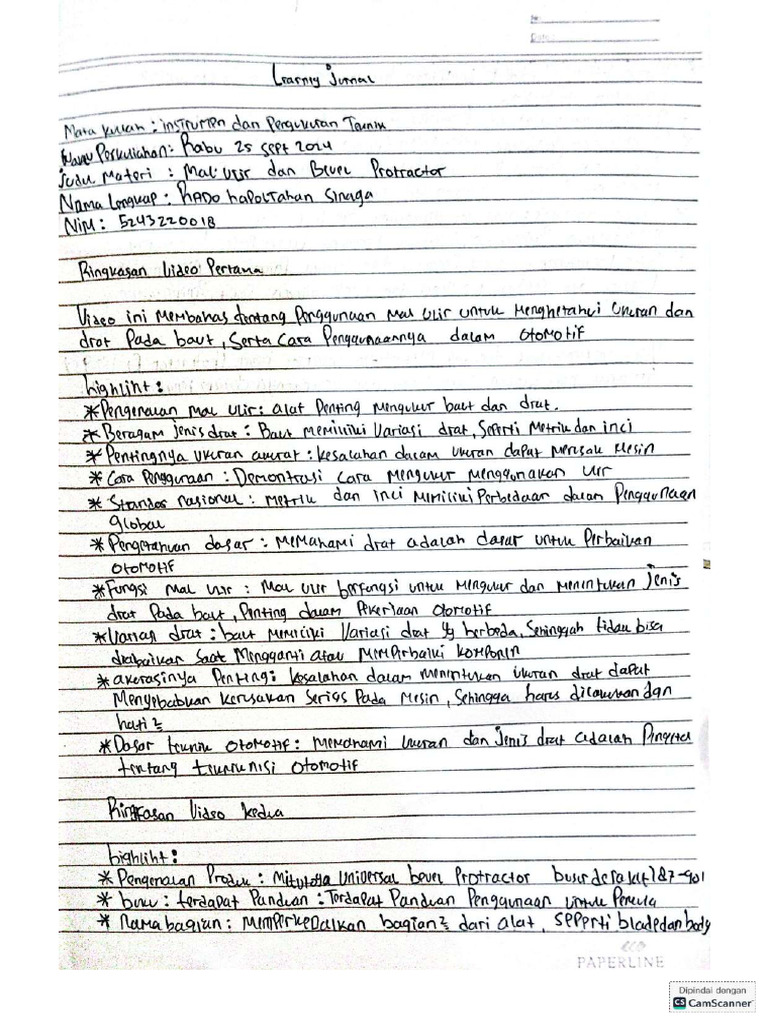 No:
Date:
Learning Jurnal
Mata kuliah : instrumen dan Pengukuran Teknik
Waktu Perkuliahan : Rabu 25 Sept 2024
Judul Materi : Mal Ulir dan Bevel Protractor
Nama Lengkap : RADO Sinaga
NIM : 5243220018
Ringkasan Video Pertama
Video ini Membahas tentang Penggunaan Mal Ulir untuk Mengetahui Ukuran dan
drat Pada baut, Serta Cara Penggunaannya dalam Otomotif
highliht :
* Pengenalan Mal Ulir : alat Penting Mengukur baut dan drat.
* Beragam jenis drat : Baut Memiliki Variasi drat, Seperti Metrik dan inci
* Pentingnya Ukuran akurat : Kesalahan dalam Ukuran dapat Merusak Mesin
* Cara Penggunaan : Demontrasi Cara Mengukur Menggunakan Ulir
* Standar nasional : Metrik dan inci Memiliki Perbedaan dalam Penggunaan
global
* Pengetahuan dasar : Memahami drat adalah dasar untuk Perbaikan
Otomotif
* Fungsi Mal Ulir : Mal Ulir berfungsi untuk Mengukur dan Menentukan Jenis
drat Pada baut, Penting dalam Pekerjaan Otomotif
* Variasi drat : baut Memiliki Variasi drat yg berbeda, Sehinggah tidak bisa
diabaikan Saat Mengganti atau Memperbaiki Komponen
* akurasinya Penting : Kesalahan dalam Menentukan Ukuran drat dapat
Menyebabkan Kerusakan Serius Pada Mesin, Sehingga harus dilakukan dgn
hati2
* Dasar teknik Otomotif : Memahami Ukuran dan Jenis drat adalah
tentang Otomotif
Ringkasan Video kedua
highliht :
* Pengenalan Produk : Mitutoyo Universal bevel Protractor busur derajat 187-901
* buku : terdapat Panduan : Terdapat Panduan Penggunaan untuk Pemula
* nama bagian : Memperkenalkan bagian2 dari alat, Seperti blade dan body
PAPERLINE
Dipindai dengan
CS CamScanner